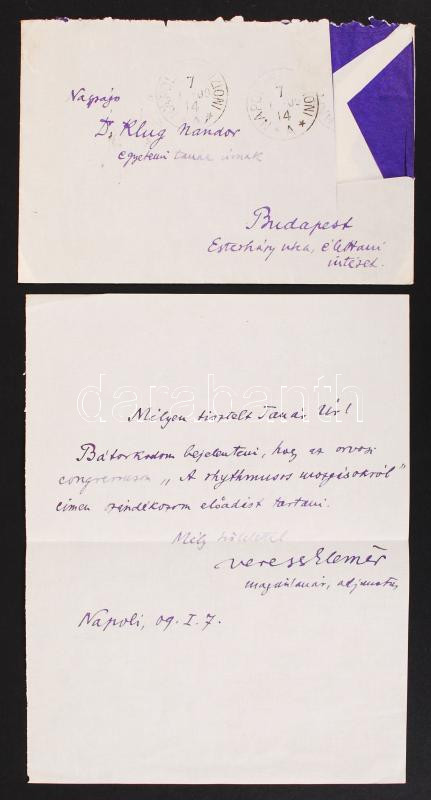 Nagyságos
Dr Klug Nandor
egyetemi tanár úrnak
NAPOLI
7
14
Budapest
Esterházy utca, élettani
intézet.
darabanth
Mélyen tisztelt Tanár Úr!
Bátorkodom bejelenteni, hogy az orvosi
congressuson „A rhythmusos mozgásokról"
címen szándékozom előadást tartani.
Mély tisztelettel
Veress Elemér
magántanár, adjunctus
Napoli, 09. I. 7.